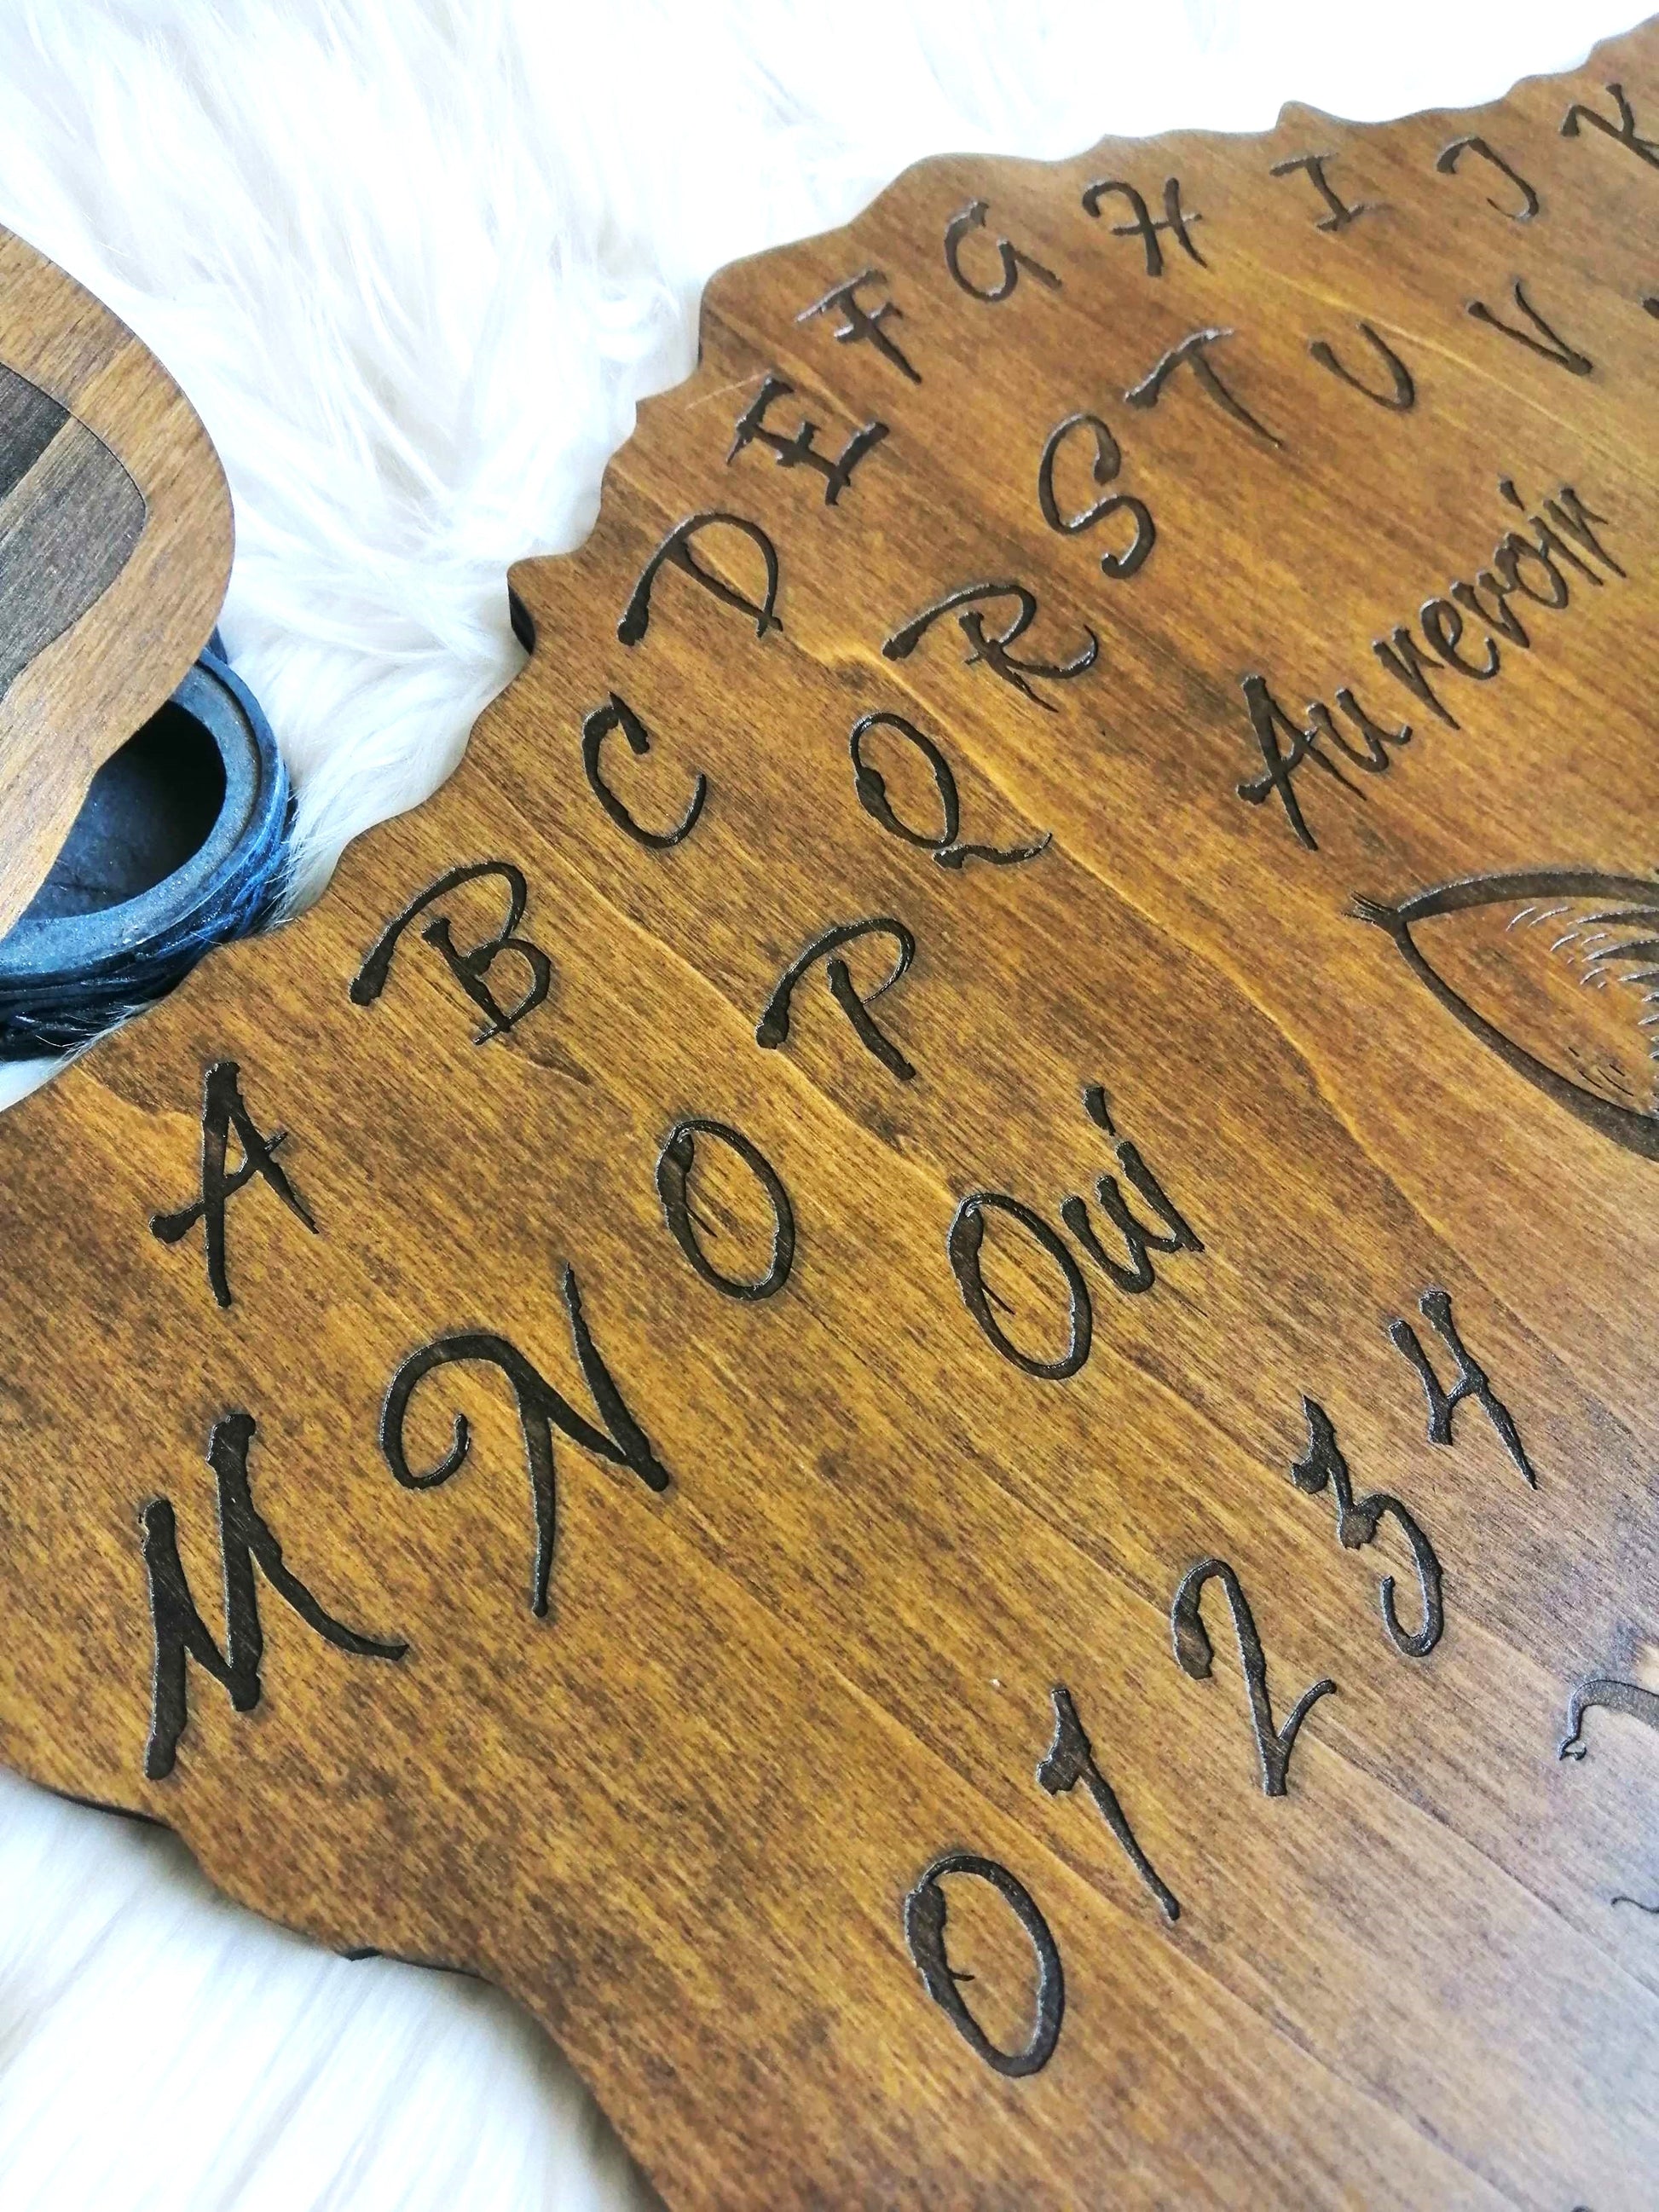 A B C D E F G H I J K
M N O P Q R S T U V
Au revoir
Oui
0 1 2 3 4